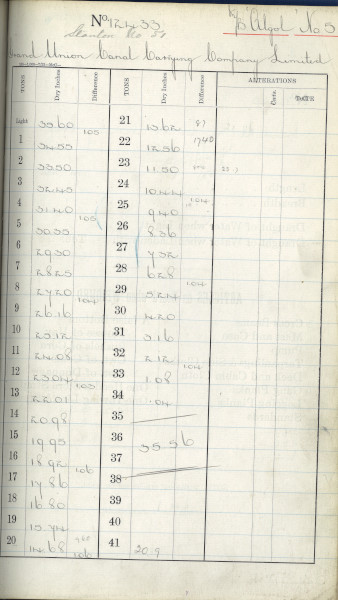 No 12433
Grand Union Canal Carrying Company Limited
"Algol" No 5
TONS Dry Inches Difference TONS Dry Inches Difference ALTERATIONS
Cwts. DATE
Light 35.60 21 13.62
105
1 34.55 22 12.56
2 33.50 23 11.50
3 32.45 24 10.44
4 31.40 25 9.40 104
105
5 30.35 26 8.36
6 29.30 27 7.32
7 28.25 28 6.28
104
8 27.20 29 5.24
104
9 26.16 30 4.20
10 25.12 31 3.16
11 24.08 32 2.12
104
12 23.04 33 1.08
103
13 22.01 34 .04
14 20.98 35
15 19.95 36 35.56
16 18.92 37
106
17 17.86 38
18 16.80 39
19 15.74 40
20 14.68 41 20.9
106